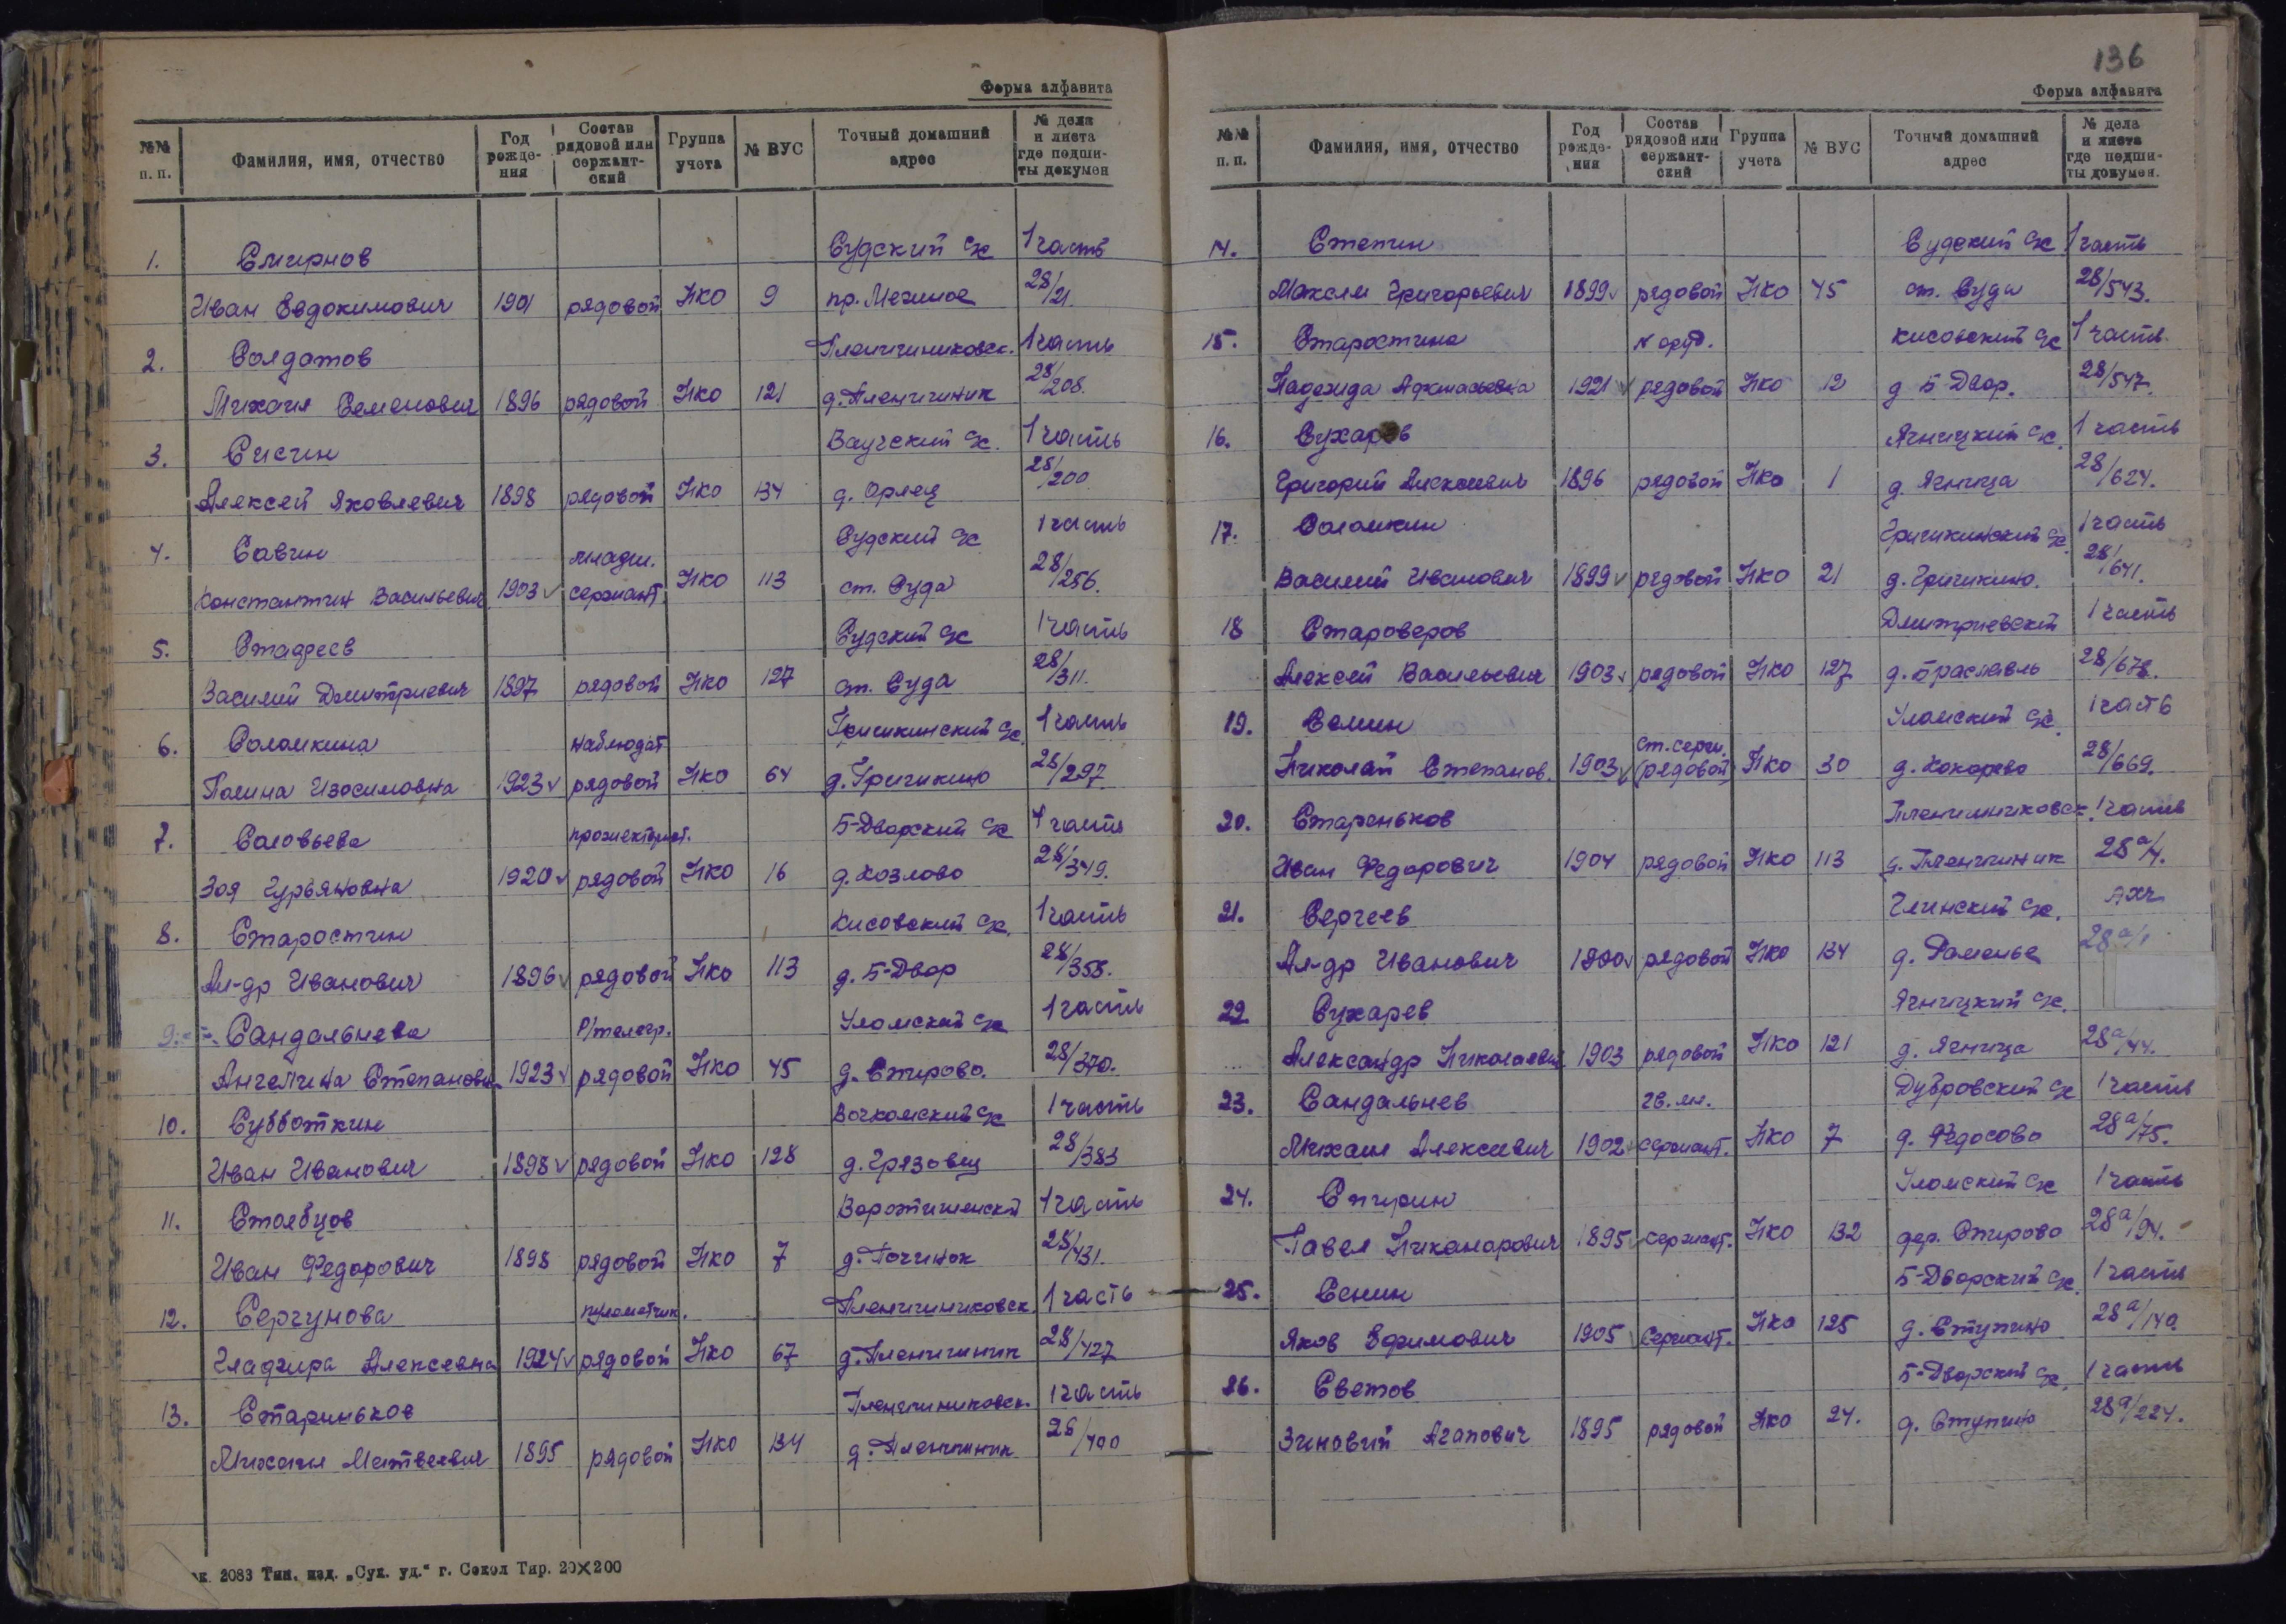 Форма алфавита
№№ п. п. Фамилия, имя, отчество Год рождения Состав рядовой или сержантский Группа учета № ВУС Точный домашний адрес № дела и листа где подшиты докумен
1. Смирнов Судский с/с 1 часть
Иван Евдокимович 1901 рядовой НКО 9 пр. 28/21.
2. Солдатов 1 часть
Михаил Семенович 1896 рядовой НКО 121 28/208.
3. Сисин с/с. 1 часть
Алексей Яковлевич 1898 рядовой НКО 134 д. Орлец 28/200
4. Савин младш. Судский с/с 1 часть
Константин Васильевич 1903 v сержант. НКО 113 ст. Суда 28/256.
5. Судский с/с 1 часть
Василий Дмитриевич 1897 рядовой НКО 127 ст. Суда 28/311.
6. Соломкина наблюдат. Гришкинский с/с. 1 часть
Полина Изосимовна 1923 v рядовой НКО 64 д. Гришкино 28/297.
7. Соловьева прожекторист. Б-Дворский с/с 1 часть
Зоя Гурьяновна 1920 v рядовой НКО 16 д. Козлово 28/349.
8. Старостин Кисовский с/с. 1 часть
Ал-др Иванович 1896 v рядовой НКО 113 д. Б-Двор 28/358.
9. Сандальнева Р/телегр. Уломский с/с 1 часть
Ангелина Степановна 1923 v рядовой НКО 45 д. Спирово. 28/370.
10. Субботкин с/с 1 часть
Иван Иванович 1898 v рядовой НКО 128 д. Грязовец 28/383
11. Столбцов 1 часть
Иван Федорович 1898 рядовой НКО 7 д. Починок 28/431.
12. Сергунова пулеметчик. 1 часть
Алексеевна 1924 v рядовой НКО 67 28/427
13. Стариньков 1 часть
Михаил Матвеевич 1895 рядовой НКО 134 28/400
2083 Тип. изд. „Сух. уд.“ г. Сокол Тир. 20×200
136
Форма алфавита
№№ п. п. Фамилия, имя, отчество Год рождения Состав рядовой или сержантский Группа учета № ВУС Точный домашний адрес № дела и листа где подшиты докумен.
14. Степин Судский с/с 1 часть
Максим Григорьевич 1899 v рядовой НКО 45 ст. Суда 28/543.
15. Старостина Кисовский с/с 1 часть.
Надежда 1921 v рядовой НКО 12 д Б-Двор. 28/547.
16. Сухарев Ягницкий с/с. 1 часть
Григорий Алексеевич 1896 рядовой НКО 1 д. Ягница 28/624.
17. Соломкин Гришкинский с/с. 1 часть
Василий Иванович 1899 v рядовой НКО 21 д. Гришкино. 28/641.
18 Староверов Дмитриевский 1 часть
Алексей Васильевич 1903 v рядовой НКО 127 д. Браславль 28/678.
19. Семин Уломский с/с. 1 часть
Николай Степанов. 1903 v ст. серж. (рядовой) НКО 30 д. Кокорево 28/669.
20. Стареньков 1 часть
Иван Федорович 1904 рядовой НКО 113 28а/4.
21. Сергеев Глинский с/с.
Ал-др Иванович v рядовой НКО 134 д. Раменье 28а/1
22 Сухарев Ягницкий с/с.
Александр Николаевич 1903 рядовой НКО 121 д. Ягница 28а/44.
23. Сандальнев гв. мл. Дубровский с/с 1 часть
Михаил Алексеевич 1902 v сержант. НКО 7 д. Федосово 28а/75.
24. Спирин Уломский с/с 1 часть
Павел Никанорович 1895 v сержант. НКО 132 дер. Спирово 28а/94.
25. Сенин Б-Дворский с/с. 1 часть
Яков Ефимович 1905 v сержант. НКО 125 д. Ступино 28а/140.
26. Светов Б-Дворский с/с. 1 часть
Зиновий Агапович 1895 рядовой НКО 24. д. Ступино 28а/224.